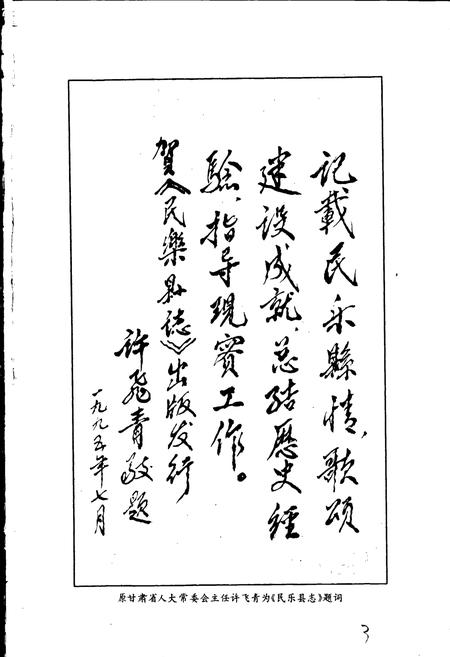 记載民乐縣情，歌颂
建设成就，总结歷史經
驗，指导現實工作。
賀《民樂县誌》出版发行
许飛青敬题
一九九五年七月
原甘肃省人大常委会主任许飞青为《民乐县志》题词
3